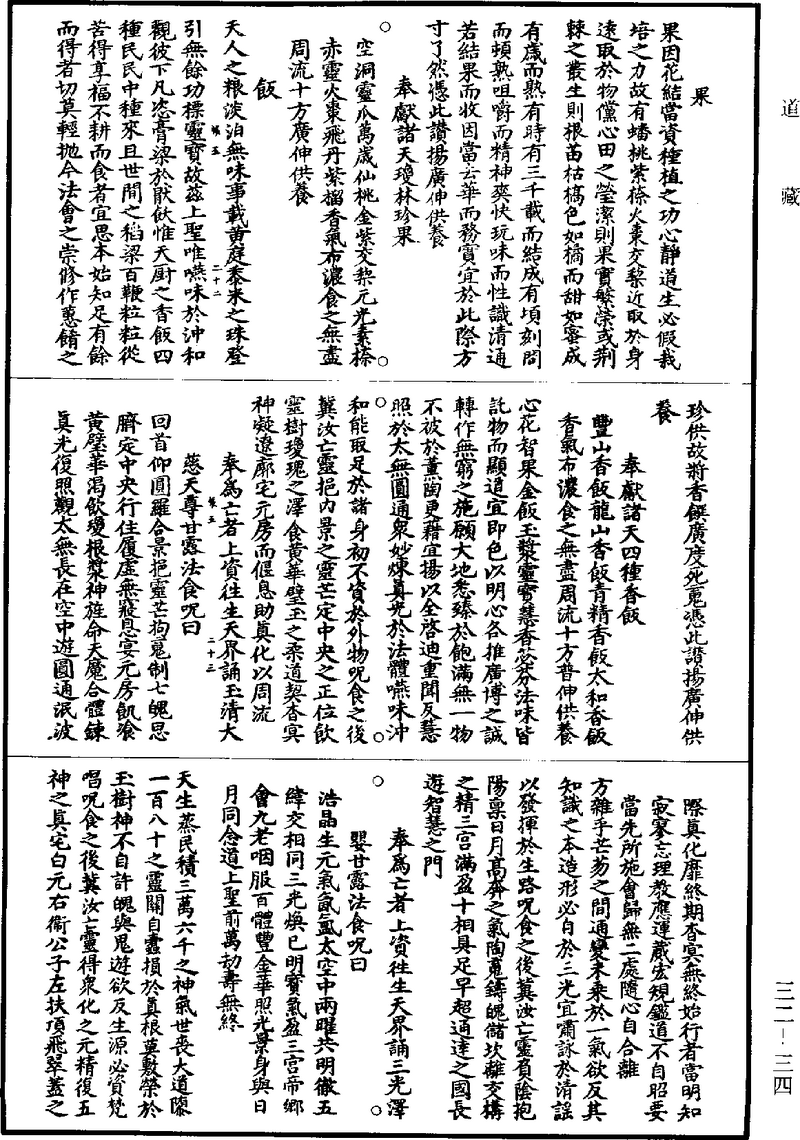 道藏
果
果因花結當資種植之功心靜道生必假栽
培之力故有蟠桃紫㮈火棗交棃近取於身
遠取於物儻心田之瑩潔則果實繁榮或荆
棘之叢生則根苗枯槁色如橘而甜如蜜成
有歲而熟有時有三千載而結成有頃刻間
而頓熟咀嚼而精神爽快玩味而性識清通
若結果而收因當去華而務實宜於此際方
寸了然憑此讃揚廣伸供養
奉獻諸天瓊林珍果
空洞靈瓜萬歲仙桃金紫交棃元光素㮈
赤靈火棗飛丹紫榴香氣布濃食之無盡
周流十方廣伸供養
飯
天人之粮淡泊無味事載黄庭黍米之珠登
引無餘功標靈寶故兹上聖唯嚥味於沖和
觀彼下凡恣膏梁於猒飫惟天厨之香飯四
種民民中種來且世間之稻梁百鞭粒粒從
苦得享福不耕而食者宜思本始知足有餘
而得者切莫輕抛今法會之崇修作蔥餚之
珍供故將香饌廣度死䰟憑此讃揚廣伸供
養
奉獻諸天四種香飯
豐山香飯龍山香飯青精香飯太和香飯
香氣布濃食之無盡周流十方普伸供養
心花智果金飯玉漿靈寶慧香苾芬法味皆
託物而顯道宜即色以明心各推廣博之誠
轉作無窮之施願大地悉臻於飽滿無一物
不被於薰陶更藉宜揚以全啓迪重聞反慧
照於太無圓通衆妙煉員光於法體嚥味沖
和能取足於諸身初不資於外物呪食之後
冀汝亡靈挹内景之靈芒定中央之正位飲
靈樹瓊瑰之澤食黄華璧玉之柔道契杳冥
神凝遼廓宅元房而偃息助眞化以周流
奉爲亡者上資往生天界誦玉清大
慈天尊甘露法食呪曰
回首仰圓羅合景挹靈芒拘䰟制七魄思
臍定中央行住履虛無寢息宴元房飢飡
黄璧華渴飲瓊根漿神旌命天魔合體鍊
眞光復照觀太無長在空中遊圓通泯波
際眞化靡終期杳冥無終始行者當明知
寂寥忘理教應運蕆宏規鑑道不自昭要
當先所施會歸無二處隨心自合離
方雜乎芒芴之間通變未乘於一氣欲反其
知識之本造形必自於三光宜嘯詠於清謡
以發揮於生路呪食之後冀汝亡靈負陰抱
陽禀日月髙奔之氣陶䰟鑄魄儲坎離交構
之精三宫滿盈十相具足早超通達之國長
遊智慧之門
奉爲亡者上資徃生天界誦三光澤
嬰甘露法食呪曰
浩晶生元氣氤氲太空中兩曜共明徹五
緯交相同三光煥已明寳氣盈三宫帝鄉
會九老咽服百體豐金華照光景身與日
月同念道上聖前萬劫壽無終
天生蒸民積三萬六千之神氣世丧大道隳
一百八十之靈關自盡損於眞根莫敷榮於
玉樹神不自許魄與鬼遊欲反生源必資梵
唱呪食之後冀汝亡靈得衆化之元精復五
神之眞宅白元右衛公子左扶項飛翠蓋之
三二—三四